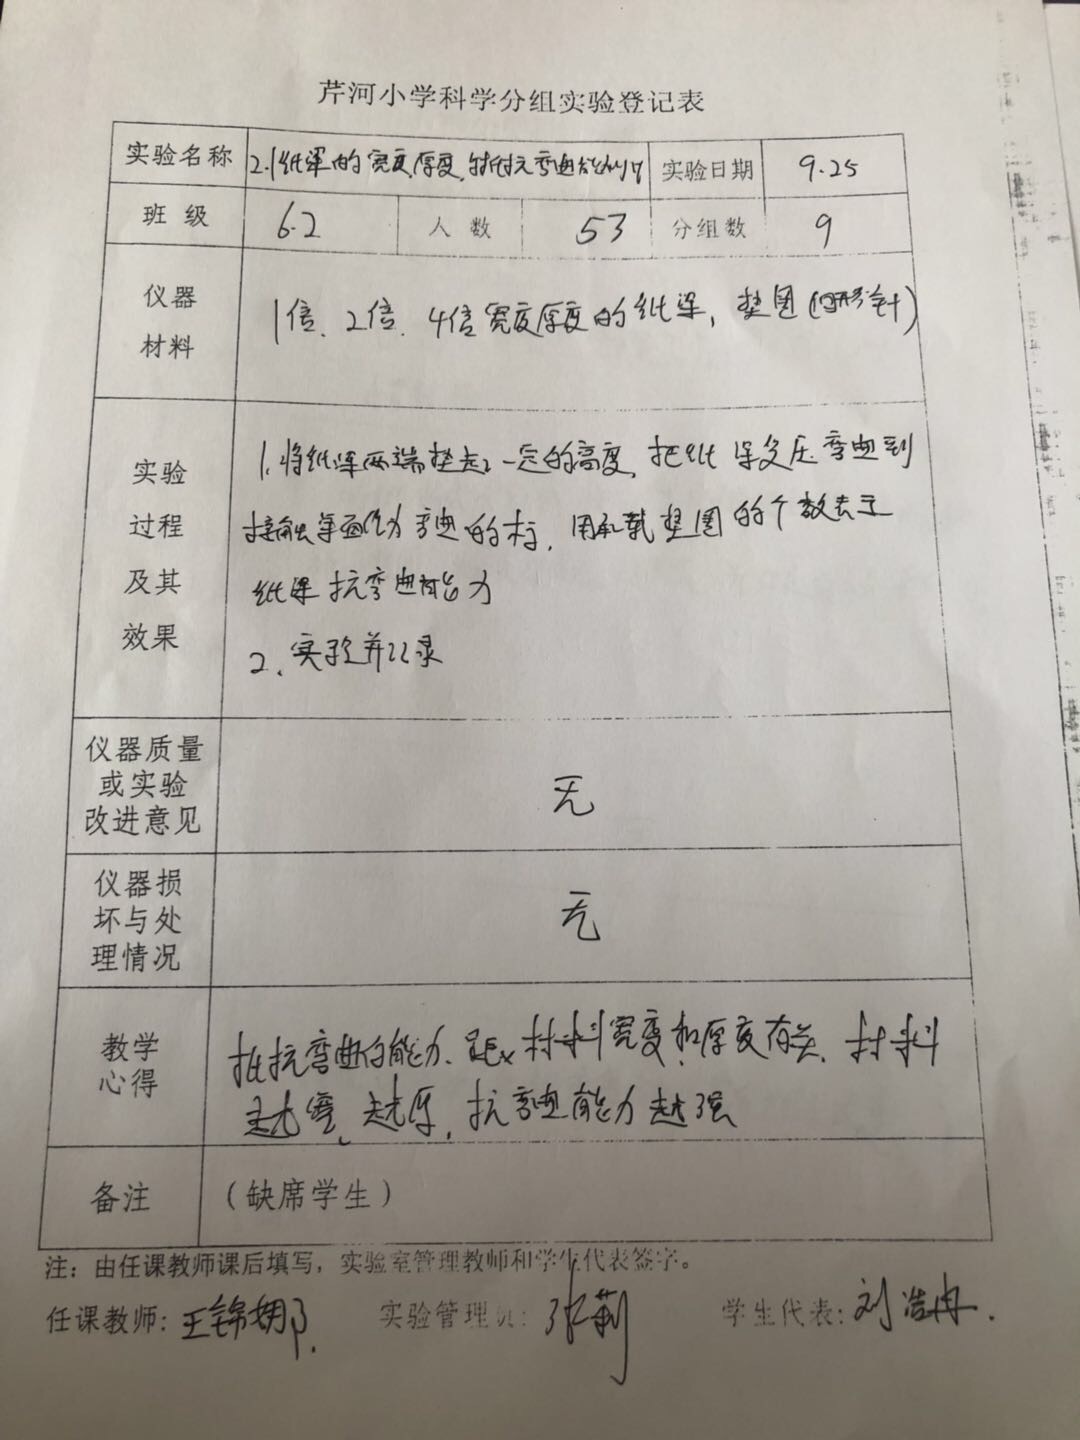 芹河小学科学分组实验登记表
实验名称 2.1纸梁的宽度,厚度, 抗弯曲能力 实验日期 9.25
班级 6.2 人数 53 分组数 9
仪器
材料
1倍、2倍、4倍宽度厚度的纸梁, 垫圈(回形针)
实验
过程
及其
效果
1.将纸梁两端垫起一定的高度, 把纸梁受压弯曲到
接触桌面作为弯曲的标, 用承载垫圈的个数表示
纸梁抗弯曲能力
2、实验并记录
仪器质量
或实验
改进意见
无
仪器损
坏与处
理情况
无
教学
心得
抵抗弯曲的能力、跟材料宽度和厚度有关、材料
越宽、越厚, 抗弯曲能力越强
备注 (缺席学生)
注: 由任课教师课后填写, 实验室管理教师和学生代表签字。
任课教师: 王锦娜. 实验管理员: 张莉 学生代表: 刘浩冉.